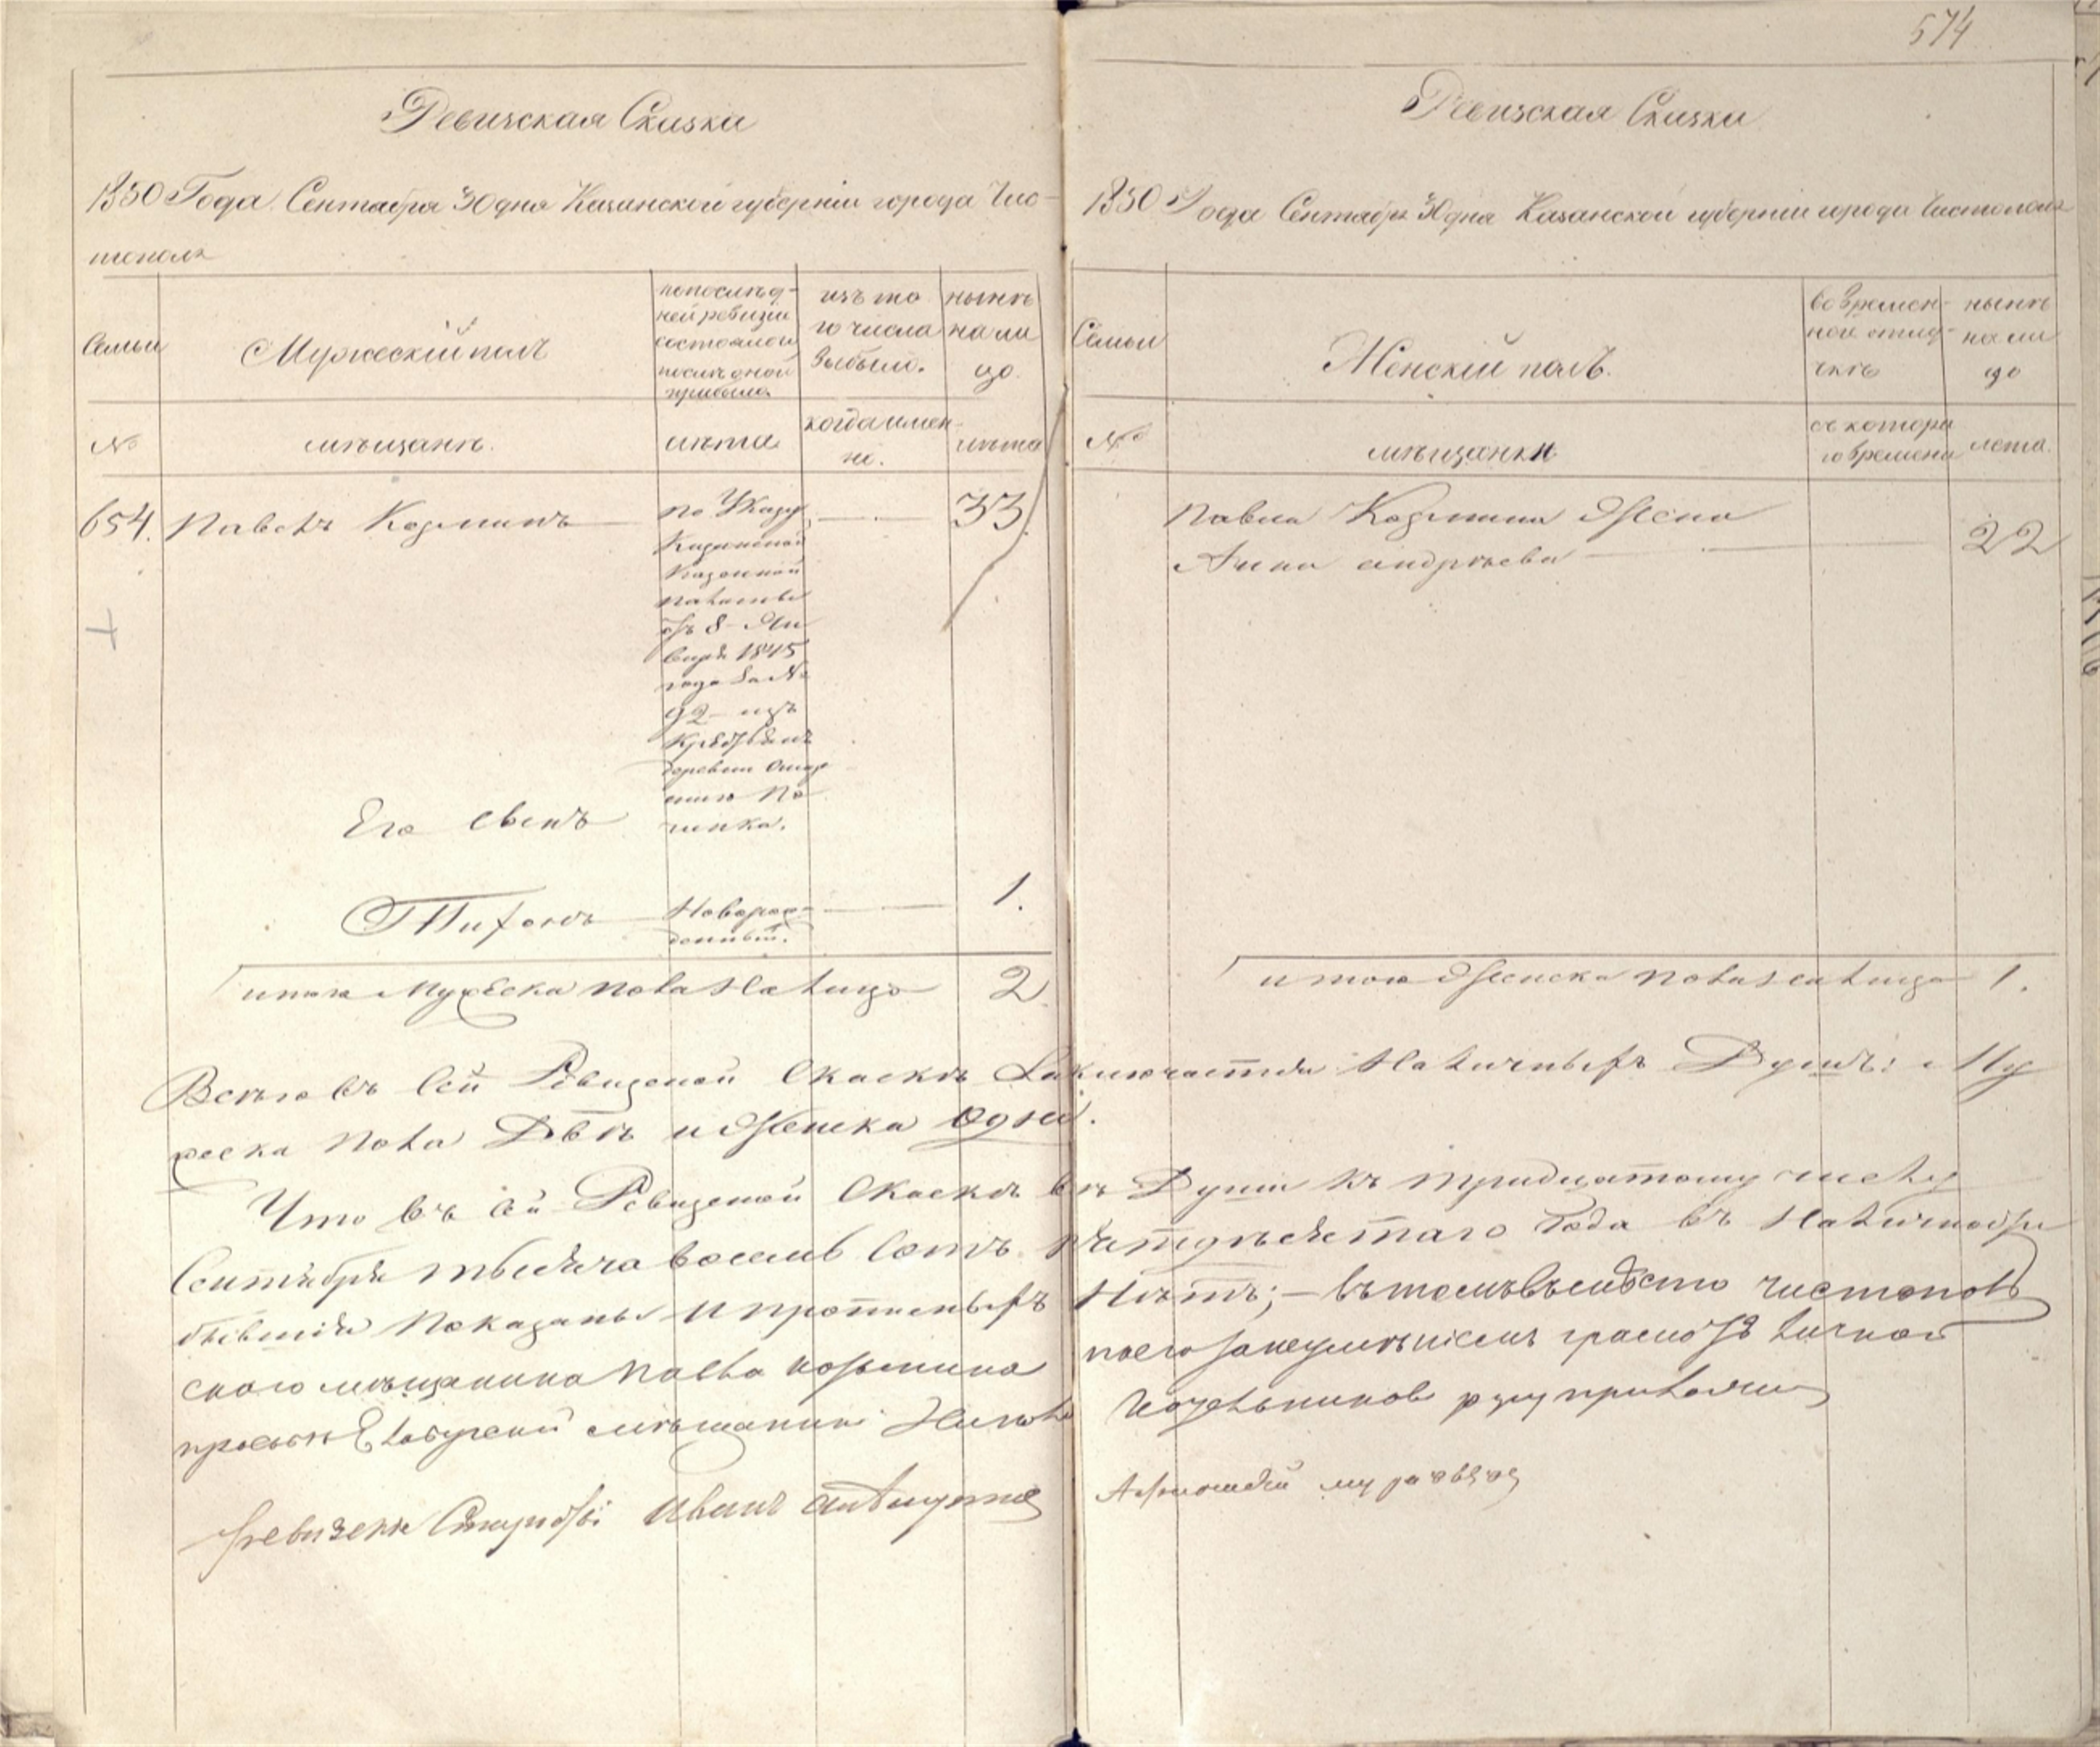 574
Ревизская Сказка
1850 Года Сентября 30 дня Казанской губерніи города Чис-
тополя
Семьи
Мужескій полъ
по послѣд-
ней ревизіи
состояло и
послѣ оной
прибыло.
изъ то
го числа
выбыло.
нынѣ
на ли
цо.
№
мѣщанѣ.
лѣта.
когда имен-
но.
лѣта
654.
Павелъ Козминъ
по Указу
Казенной
палаты
отъ 8 Ян
варя 1845
года за №
92 изъ
Крестьянъ
деревни
По
чинка.
33
Его сынъ
Тихонъ
Новорож-
денный.
1.
итого Мужеска пола На лицо 2
Ревизская Сказка
1850 Года Сентября 30 дня Казанской губерніи города Чистополя
Семьи
Женскій полъ.
во времен-
ной отлу-
чкѣ
нынѣ
на ли
цо
№
мѣщанки
съ котора
го времени
лета.
Павла Козмина Жена
Анна андрѣева
22
итого Женска пола на лицо 1.
Всего въ сей Ревизской Скаскѣ Заключается Наличныхъ Душъ: Му
жеска пола Двѣ и Женска одна.
Что въ сей Ревизской Скаскѣ всѣ Души къ тридцатому числу
Сентября тысяча восемь сотъ пятдесятаго Года въ Наличности
бывшія Показаны и прописныхъ Нѣтъ; – въ томъ вмѣсто чистополь
скаго мѣщанина Павла козмина по его неумѣнію грамотѣ личной
прозьбѣ Елабужскій мѣщанинъ руку приложилъ
Староста Иванъ